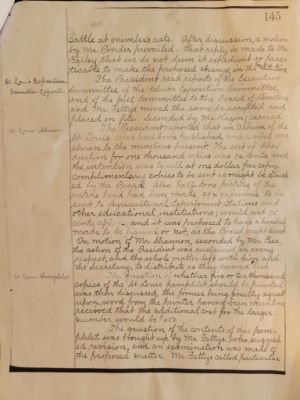 145
cattle at members rate. After discussion, a motion
by Mr. Ponder prevailed, that reply be made to Mr.
Bailey that we do not deem it expedient or prac-
ticable to make the proposed change in the
St. Louis Exposition
Committee Reports
The President read reports of the Executive
Committee of the St. Louis Exposition Committee,
and of the pilot Committee to the Board of Directors
and Mr. Gettys moved the same be accepted and
placed on file. Seconded by Mr. Ham; carried.
St. Louis Album
The President reported that an Album of the
St. Louis herd had been published, and a copy was
shown to the members present. The cost of pro-
duction for one thousand copies was 90 cents, and
the intention was to sell at one dollar per copy,
complimentary copies to be sent as might be direct-
ed by the Board. Also half-tone pictures of the
entire herd had been made
sent to Agricultural Experiment Stations and
other educational institutions; would cost 70
cents each, and it was proposed to have a hundred
made to be framed or not, as the Board might direct.
On motion of Mr. Shannon, seconded by Mr. Bee,
the action of the President was sustained in every
respect, and the whole matter left with him and
the Secretary, to distribute as they deemed best.
St. Louis Pamphlet
Question of whether five or ten thousand
copies of the St. Louis pamphlet should be printed
was then discussed, the former being finally agreed
upon, word from the printer having been meantime
received that the additional cost for the larger
number would be
The question of the contents of this pam-
phlet was brought up by Mr. Gettys who suggest-
ed revision, and an examination was made of
the proposed matter. Mr. Gettys called particular